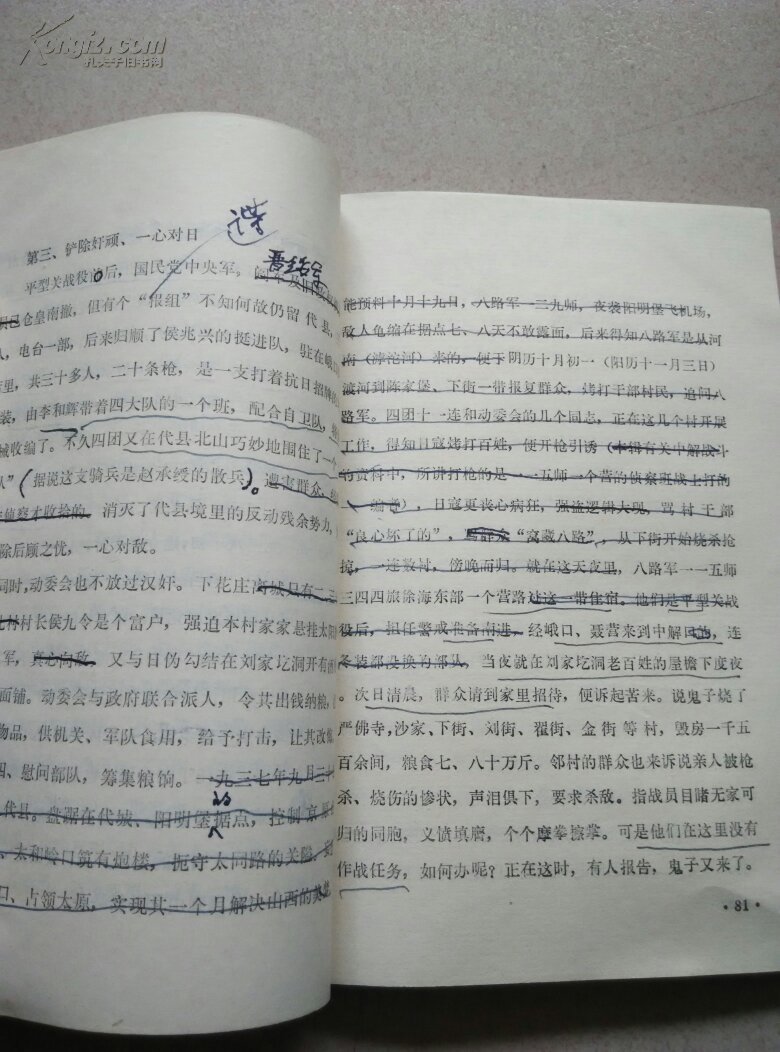 Kongfz.com
孔夫子旧书网
第三、铲除奸顽、一心对日
平型关战役后，国民党中央军。
仓皇南撤，但有个“报组”不知何故仍留代县，
人，电台一部，后来归顺了侯兆兴的挺进队，驻在
里，共三十多人，二十条枪，是一支打着抗日招牌的
装，由李和辉带着四大队的一个班，配合自卫队，
械收编了。不久四团又在代县北山巧妙地围住了一个
队”（据说这支骑兵是赵承绶的散兵）。遭害群众，
侦察才收拾的。消灭了代县境里的反动残余势力，
除后顾之忧，一心对敌。
同时，动委会也不放过汉奸。下花庄离城只有二、三
村村长侯九令是个富户，强迫本村家家悬挂太阳
军，真心向敌。又与日伪勾结在刘家圪洞开有
面铺。动委会与政府联合派人，令其出钱纳粮，
物品，供机关、军队食用，给予打击，让其改
四、慰问部队，筹集粮饷。一九三七年九月三十
代县。盘踞在代城、阳明堡的据点，控制京原
、太和岭口筑有炮楼，扼守太同路的关隘，
口、占领太原，实现其一个月解决山西的
能预料十月十九日，八路军一二九师，夜袭阳明堡飞机场，
敌人龟缩在据点七、八天不敢露面，后来得知八路军是从河
南（滹沱河）来的，便于阴历十月初一（阳历十一月三日）
渡河到陈家堡、下街一带报复群众，烤打干部村民，追问八
路军。四团十一连和动委会的几个同志，正在这几个村开展
工作，得知日寇烤打百姓，便开枪引诱（本辑有关中解战斗
的资料中，所讲打枪的是一一五师一个营的侦察班战士打的
—编者），日寇更丧心病狂，强盗逻辑大现，骂村干部
“良心坏了的”，骂群众“窝藏八路”，从下街开始烧杀抢
掠，一连数村，傍晚而归。就在这天夜里，八路军一一五师
三四四旅徐海东部一个营路过这一带住宿。他们是平型关战
役后，担任警戒准备南进。经峨口、聂营来到中解的，连
冬装都没换的部队，当夜就在刘家圪洞老百姓的屋檐下度夜
。次日清晨，群众请到家里招待，便诉起苦来。说鬼子烧了
严佛寺，沙家、下街、刘街、翟街、金街等村，毁房一千五
百余间，粮食七、八十万斤。邻村的群众也来诉说亲人被枪
杀、烧伤的惨状，声泪俱下，要求杀敌。指战员目睹无家可
归的同胞，义愤填膺，个个摩拳擦掌。可是他们在这里没有
作战任务，如何办呢？正在这时，有人报告，鬼子又来了。
·81·